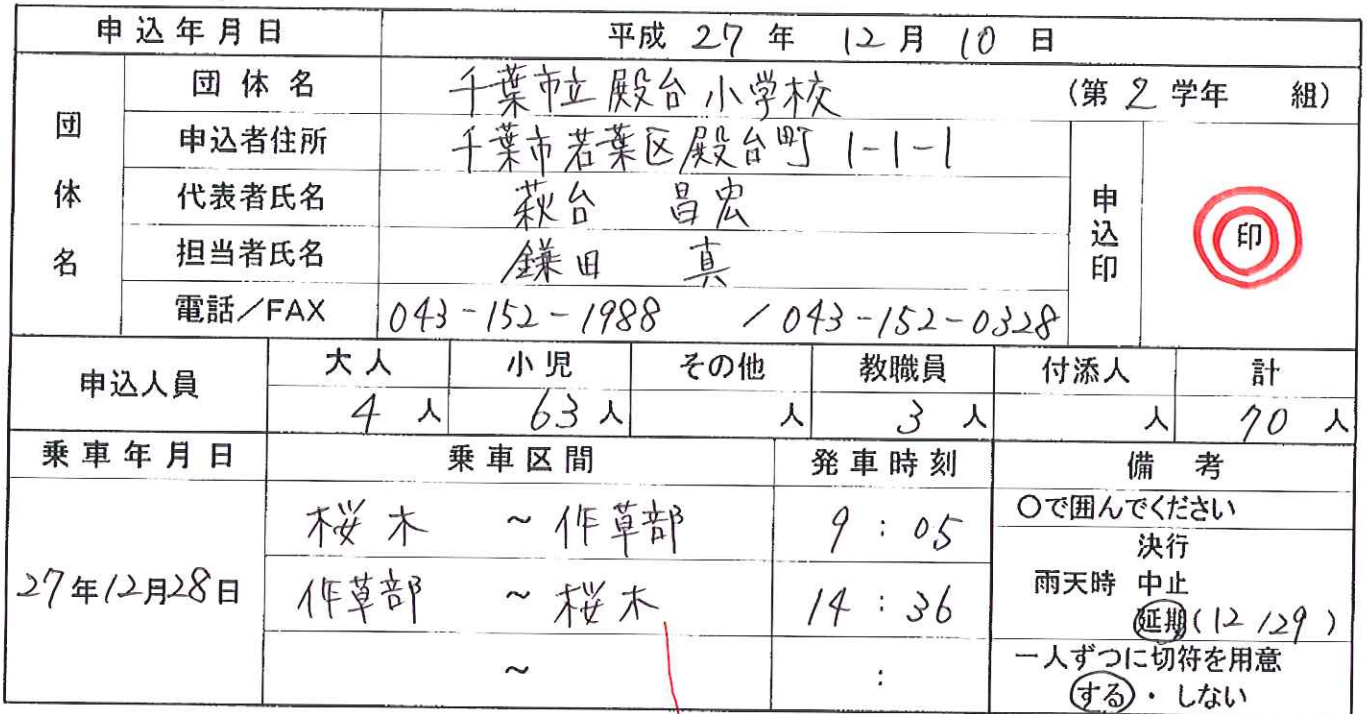 申込年月日 平成 27 年 12 月 10 日
団体名
団体名 千葉市立殿台小学校 (第 2 学年 組)
申込者住所 千葉市若葉区殿台町 1-1-1
代表者氏名 萩台 昌宏
担当者氏名 鎌田 真
電話/FAX 043-152-1988 / 043-152-0328
申込印 印
申込人員 大人 小児 その他 教職員 付添人 計
4 人 63 人 人 3 人 人 70 人
乗車年月日 乗車区間 発車時刻 備考
27年12月28日
桜木 ~ 作草部 9 : 05
作草部 ~ 桜木 14 : 36
~ :
○で囲んでください
決行
雨天時 中止
延期(12/29)
一人ずつに切符を用意
する・しない